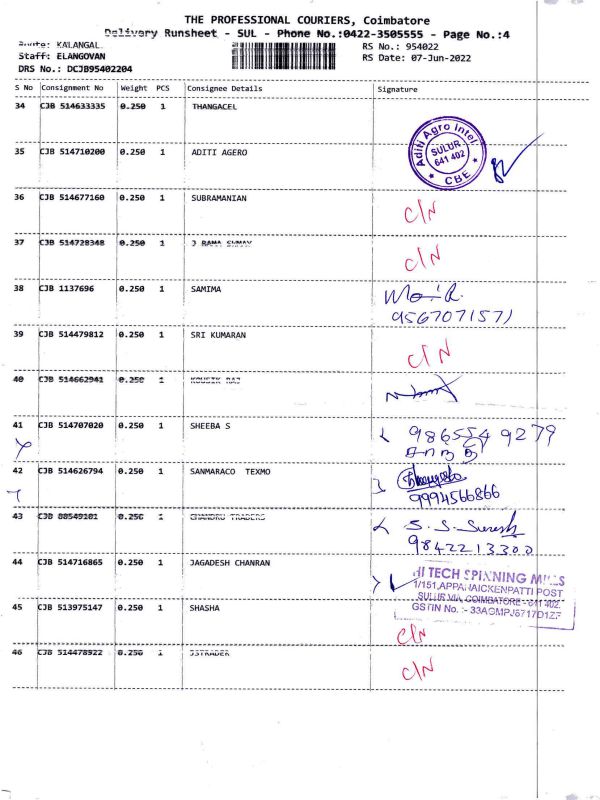 THE PROFESSIONAL COURIERS, Coimbatore
Delivery Runsheet - SUL - Phone No.:0422-3505555 - Page No.:4
Route: KALANGAL
RS No.: 954022
Staff: ELANGOVAN
RS Date: 07-Jun-2022
DRS No.: DCJB95402204
S No Consignment No Weight PCS Consignee Details Signature
34 CJB 514633335 0.250 1 THANGACEL
Aditi Agro Intel.
SULUR
641 402
★ CBE ★
35 CJB 514710200 0.250 1 ADITI AGERO
36 CJB 514677160 0.250 1 SUBRAMANIAN C/N
37 CJB 514728348 0.250 1 C/N
38 CJB 1137696 0.250 1 SAMIMA
9567071571
39 CJB 514479812 0.250 1 SRI KUMARAN C/N
40 CJB 514662941 0.250 1 KOUSIK RAJ
41 CJB 514707020 0.250 1 SHEEBA S 9865549279
42 CJB 514626794 0.250 1 SANMARACO TEXMO
9994566866
43 CJB 88549181 0.250 1 CHANDRU TRADERS S. S. Suresh
9842213300
44 CJB 514716865 0.250 1 JAGADESH CHANRAN
HI TECH SPINNING MILLS
1/151, APPANAICKENPATTI POST
SULUR VIA, COIMBATORE - 641 402.
GSTIN No. :- 33AGMPJ6717D1ZF
45 CJB 513975147 0.250 1 SHASHA C/N
46 CJB 514478922 0.250 1 JSTRADER C/N